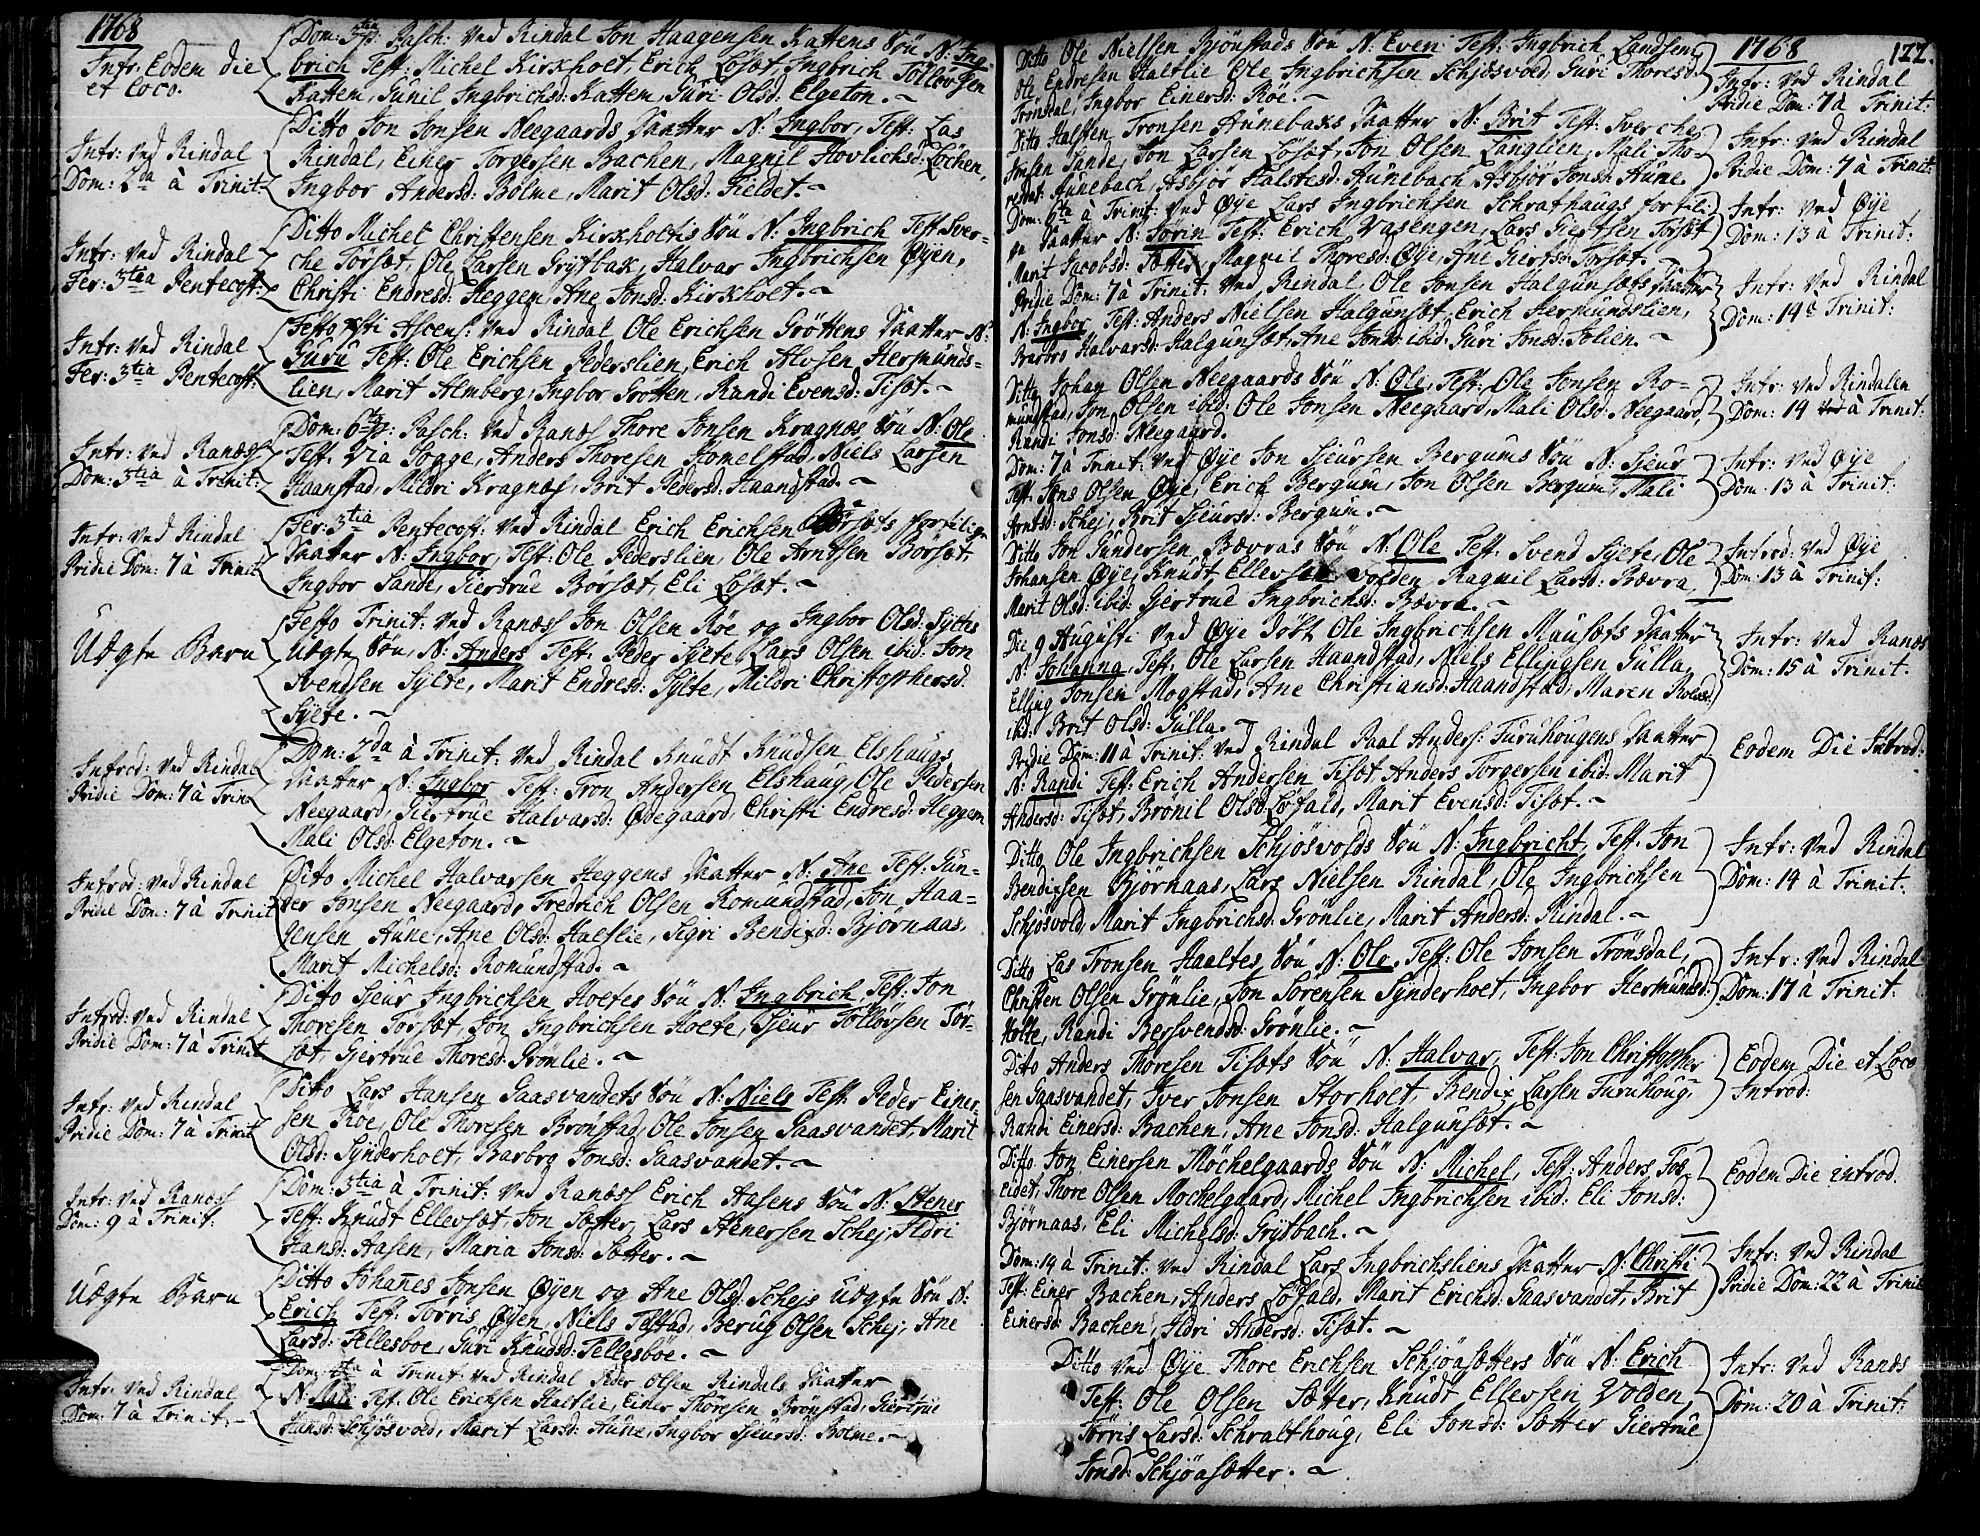 1768
Intr: Eodem die
et Loco.
Dom: 3tia p: Pasch: ved Rindal Jon Haagensen Kattems Søn N: Ing-
brich Test: Michel Kirkholt, Erich Løsæt, Ingbrich Tollevsen
Kattem, Gunil Ingbrichsd: Kattem, Guri Olsd: Elgeton. ~
Intr: ved Rindal
Dom: 2da à Trinit:
Ditto Jon Jonsen Neegaards Daatter N: Ingbor, Test: Las
Rindal, Einer Torgersen Bachen, Magnil Hovlichsd: Løchen,
Ingbor Andersd: Bolme, Marit Olsd: Fieldet. ~
Intr: ved Rindal
Fer: 3tia Pentecost:
Ditto Michel Christensen Kirkholtis Søn N: Ingbrich Test: Sver-
che Torsæt, Ole Larsen Grytbak, Halvar Ingbrichsen Øyen,
Christi Endresd: Heggem, Ane Jonsd: Kirkholt. ~
Intr: ved Rindal
Fer: 3tia Pentecost:
Festo Xsti Ascens: ved Rindal Ole Erichsen Grøttens Daatter N:
Guru Test: Ole Erichsen Pederslien, Erich Alvsen Hermunds-
lien, Marit Almberg, Ingbor Grøtten, Randi Evensd: Tisæt. ~
Intr: ved Ranæss
Dom: 3tia à Trinit:
Dom: 6ta p: Pasch: ved Ranæss Thore Jonsen Kragnæs Søn N: Ole
Test: Via Sogge, Anders Thoresen Homelstad, Niels Larsen
Haanstad, Mildri Kragnæs, Brit Pedersd: Haandstad. ~
Intr: ved Rindal
Pridie Dom: 7 à Trinit:
Fer: 3tia Pentecost: ved Rindal Erich Erichsen Børsæts fortilige
Daatter N: Ingbor, Test: Ole Pederslien, Ole Arntsen Børsæt,
Ingbor Sande, Giertrue Borsæt, Eli Løsæt. ~
Uægte Barn
Festo Trinit: ved Ranæss Jon Olsen Røe og Ingbor Olsd: Sÿltes
Uægte Søn, N: Anders Test: Peder Sÿlte, Lars Olsen ibid: Jon
Svendsen Sÿlte, Marit Endresd: Sÿlte, Mildri Christophersd:
Sÿlte. ~
Introd: ved Rindal
Pridie Dom: 7 à Trin:
Dom: 2da à Trinit: ved Rindal Knudt Knudsen Elshaugs
Daatter N: Ingbor Test: Tron Andersen Elshaug, Ole Pedersen
Neegaard, Giertrue Halvarsd: Ødegaard, Christi Endresd: Heggem
Mali Olsd: Elgeton. ~
Introd: ved Rindal
Pridie Dom: 7 à Trinit
Ditto Michel Halvarsen Heggems Daatter N: Ane Test: Gun-
der Jonsen Neegaard, Fredrich Olsen Romundstad, Jon Haa-
gensen Aune, Ane Olsd: Haltlie, Sigri Bendixd: Bjørnaas,
Marit Michelsd: Romundstad. ~
Introd: ved Rindal
Pridie Dom: 7 à Trinit
Ditto Sjeur Ingbrichsen Holtes Søn N: Ingbrich, Test: Jon
Thoresen Torsæt, Jon Ingbrichsen Holte, Sjeur Tollovsen Tor-
sæt, Gjertrue Thoresd: Grønlie. ~
Intr: ved Rindal
Pridie Dom: 7 à Trinit
Ditto Lars Hansen Gaasvandets Søn N: Niels Test: Peder Einer-
sen Røe, Ole Thoresen Brønstad, Ole Jonsen Gaasvandet, Marit
Olsd: Sÿnderholt, Barbro Jonsd: Gaasvandet. ~
Intr: ved Ranæss
Dom: 9 à Trinit:
Dom: 3tia à Trinit: ved Ranæss Erich Aasens Søn N: Stener
Test: Knudt Ellevsæt, Jon Sætter, Lars Stenersen Schej, Ildri
Hansd: Aasen, Maria Jonsd: Sætter. ~
Uægte Barn
Ditto Johannes Jonsen Øyen og Ane Olsd: Schejs Uægte Søn N:
Erich Test: Torris Øyen, Niels Telstad, Berug Olsen Schej, Ane
Larsd: Tellesboe, Guri Knudsd: Tellesbøe. ~
Intr: ved Rindal
Dom: 7 à Trinit. ~
Dom: 4ta à Trinit: ved Rindal Peder Olsen Rindals Daatter
N: Mali Test: Ole Erichsen Haltlie, Einer Thoresen Brønstad, Giertrue
Hansd: Schjøsvold, Marit Larsd: Aune, Ingbor Sjeursd: Bolme. ~
1768 122.
Ditto Ole Nielsen Bjønstads Søn N: Even Test: Ingbrich Landsen
Ole Endresen Haltlie Ole Ingbrichsen Schjøsvold, Guri Thoresd:
Trønsdal, Ingbor Einersd: Røe. ~
Intr: ved Rindal
Pridie Dom: 7 à Trinit:
Ditto Halsten Tronsen Aunebaks Daatter N: Brit Test: Sverche
Jonsen Sande, Jon Larsen Løsæt, Jon Olsen Langlien, Mali Tho-
resdat: Aunebach, Asbjør Halstensd: Aunebach Asbjør Jonsd: Aune.
Intr: ved Rindal
Pridie Dom: 7 à Trinit:
Dom: 6ta à Trinit: ved Øye Lars Ingbrichsen Schrathaugs fortili-
ge Daatter N: Sorin Test: Erich Vasengen, Lars Giertsen Torsæt
Marit Jacobsd: Sætter, Magnil Thoresd: Øye, Ane Giertsd: Torsæt. ~
Intr: ved Øye
Dom: 13 à Trinit:
Pridie Dom: 7 à Trinit: ved Rindal, Ole Jonsen Halgunsæts Daatter
N: Ingbor, Test: Anders Nielsen Halgunsæt, Erich Hermundslien,
Barbro Halvarsd: Halgunsæt, Ane Jonsd: ibid: Guri Jonsd: Solien. ~
Intr: ved Rindal
Dom: 14 à Trinit:
Ditto Johan Olsen Neegaards Søn N: Ole, Test: Ole Jonsen Ro-
mundstad, Jon Olsen ibid: Ole Jonsen Neegaard, Mali Olsd: Neegaard,
Randi Jonsd: Neegaard.
Intr: ved Rindalen
Dom: 14 à Trinit:
Dom: 7 à Trinit: ved Øye Jon Sjeursen Bergums Søn N: Sjeur
Test: Jens Olsen Øye, Erich Bergum, Jon Olsen Bergum, Mali
Arntsd: Schej, Brit Sjeursd: Bergum. ~
Intr: ved Øye
Dom: 13 à Trinit:
Ditto Jon Gundersen Bævras Søn N: Ole Test: Svend Sylte, Ole
Johansen Øye, Knudt Ellevsen volden, Ragnil Larsd: Bævra,
Marit Olsd: ibid: Gjertrue Ingbrichsd: Bævra. ~
Introd: ved Øye
Dom: 13 à Trinit:
Die 9 Augusti ved Øye døbt Ole Ingbrichsen Mausæts Daatter
N: Johanna, Test: Ole Larsen Haandstad, Niels Ellingsen Gulla,
Elling Jonsen Mogstad, Ane Christiansd: Haandstad, Maren Roelsd:
ibid: Brit Olsd: Gulla. ~
Intr: ved Ranæs
Dom: 15 à Trinit.
Pridie Dom: 11 à Trinit: ved Rindal Paal Anders: Furuhougens Daatter
N: Randi Test: Erich Andersen Tisæt Anders Torgersen ibid: Marit
Andersd: Tisæt, Brønil Olsd: Løfald, Marit Evensd: Tisæt. ~
Eodem Die Introd:
Ditto Ole Ingbrichsen Schjøsvolds Søn N: Ingbricht, Test: Jon
Bendixsen Bjørnaas, Lars Nielsen Rindal, Ole Ingbrichsen
Schjøsvold, Marit Ingbrichsd: Grønlie, Marit Andersd: Rindal. ~
Intr: ved Rindal
Dom: 14 à Trinit:
Ditto Las Tronsen Haaltes Søn N: Ole, Test: Ole Jonsen Trønsdal,
Christen Olsen Grønlie, Jon Sørensen Sÿnderholt, Ingbor Hermundsd:
Holte, Randi Bersvendsd: Grønlie. ~
Intr: ved Rindal
Dom: 17 à Trinit:
Ditto Anders Thoresen Tisæts Søn N: Halvar, Test: Jon Christopher-
sen Gaasvandet, Iver Jonsen Storholt, Bendix Larsen Furuhoug,
Randi Einersd: Bachen, Ane Jonsd: Halgunsæt. ~
Eodem Die et Loco
Introd:
Ditto Jon Einersen Møchelgaards Søn N: Michel, Test: Anders Fos-
eidet, Thore Olsen Mochelgaard, Michel Ingbrichsen ibid: Eli Jonsd:
Bjørnaas, Eli Michelsd: Grytbach. ~
Eodem Die introd.
Dom: 14 à Trinit: ved Rindal Lars Ingbrichsliens Daatter N: Christi
Test: Einer Bachen, Anders Løfald, Marit Erichsd: Gaasvandet, Brit
Einersd: Bachen, Ildri Andersd: Tisæt. ~
Intr: ved Rindal
Pridie Dom: 22 à Trinit
Ditto ved Øye Thore Erichsen Schjøasætters Søn N: Erich
Test: Ole Olsen Sætter, Knudt Ellevsen Volden,
Torris Larsd: Schralthoug, Eli Jonsd: Sætter Giertrue
Jonsd: Schjøasætter. ~
Intr: ved Ranæs
Dom: 20 à Trinit: